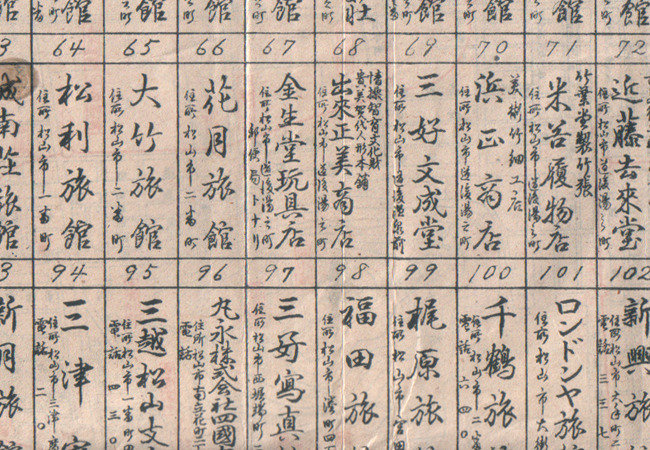 館
館
館
館
館
荘
館
館
館
64
65
66
67
68
69
70
71
72
近藤去来堂
竹葉堂製竹張
米谷履物店
住所 松山市 道後湯之町
美術竹細工店
浜正商店
住所 松山市 道後湯之町
三好文成堂
出來正美商店
住所 松山市 道後湯之町
金生堂玩具店
住所 松山市 道後湯之町
郵便局トナリ
花月旅館
住所 松山市 二番町
大竹旅館
住所 松山市 二番町
松利旅館
住所 松山市 一番町
城南荘旅館
94
95
96
97
98
99
100
101
102
新興旅
電話 三三七
ロンドンヤ旅
住所 松山市 大街
千鶴旅
住所 松山市 二番
電話 六四
梶原旅
住所 松山市
福田旅
住所 松山市 湊町四丁
三好寫真
住所 松山市 西堀端町
丸永株式会社四國
電話
三越松山支
住所 松山市 一番町
電話 四三〇
三津
住所 松山市 三津
電話 二〇
新月旅館